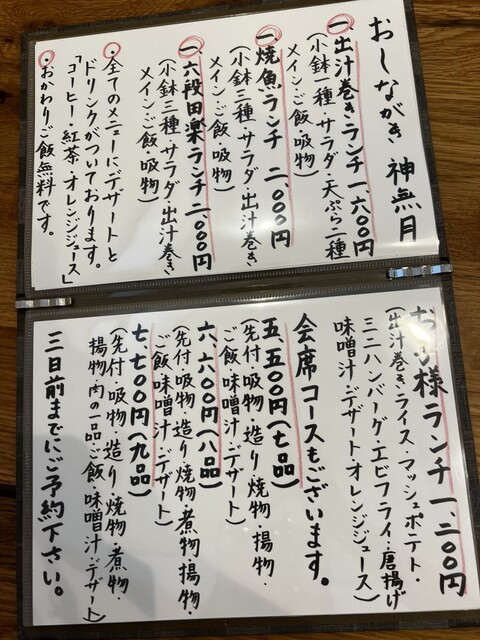 おしながき 神無月
一、出汁巻きランチ 一、六〇〇円
(小鉢二種・サラダ・天ぷら二種
メイン・ご飯・吸物)
一、焼魚ランチ 二、〇〇〇円
(小鉢三種・サラダ・出汁巻き
メイン・ご飯・吸物)
一、六段田楽ランチ 二、〇〇〇円
(小鉢三種・サラダ・出汁巻き
メイン・ご飯・吸物)
・全てのメニューにデザートと
ドリンクがついております。
「コーヒー・紅茶・オレンジジュース」
・おかわりご飯無料です。
お子様ランチ 一、二〇〇円
(出汁巻き・ライス・マッシュポテト・
ミニハンバーグ・エビフライ・唐揚げ
味噌汁・デザート・オレンジジュース)
会席コースもございます。
五、五〇〇円(七品)
(先付・吸物・造り・焼物・揚物・
ご飯・味噌汁・デザート)
六、六〇〇円(八品)
(先付・吸物・造り・焼物・煮物・揚物・
ご飯・味噌汁・デザート)
七、七〇〇円(九品)
(先付・吸物・造り・焼物・煮物・
揚物・肉の一品・ご飯・味噌汁・デザート)
三日前までにご予約下さい。